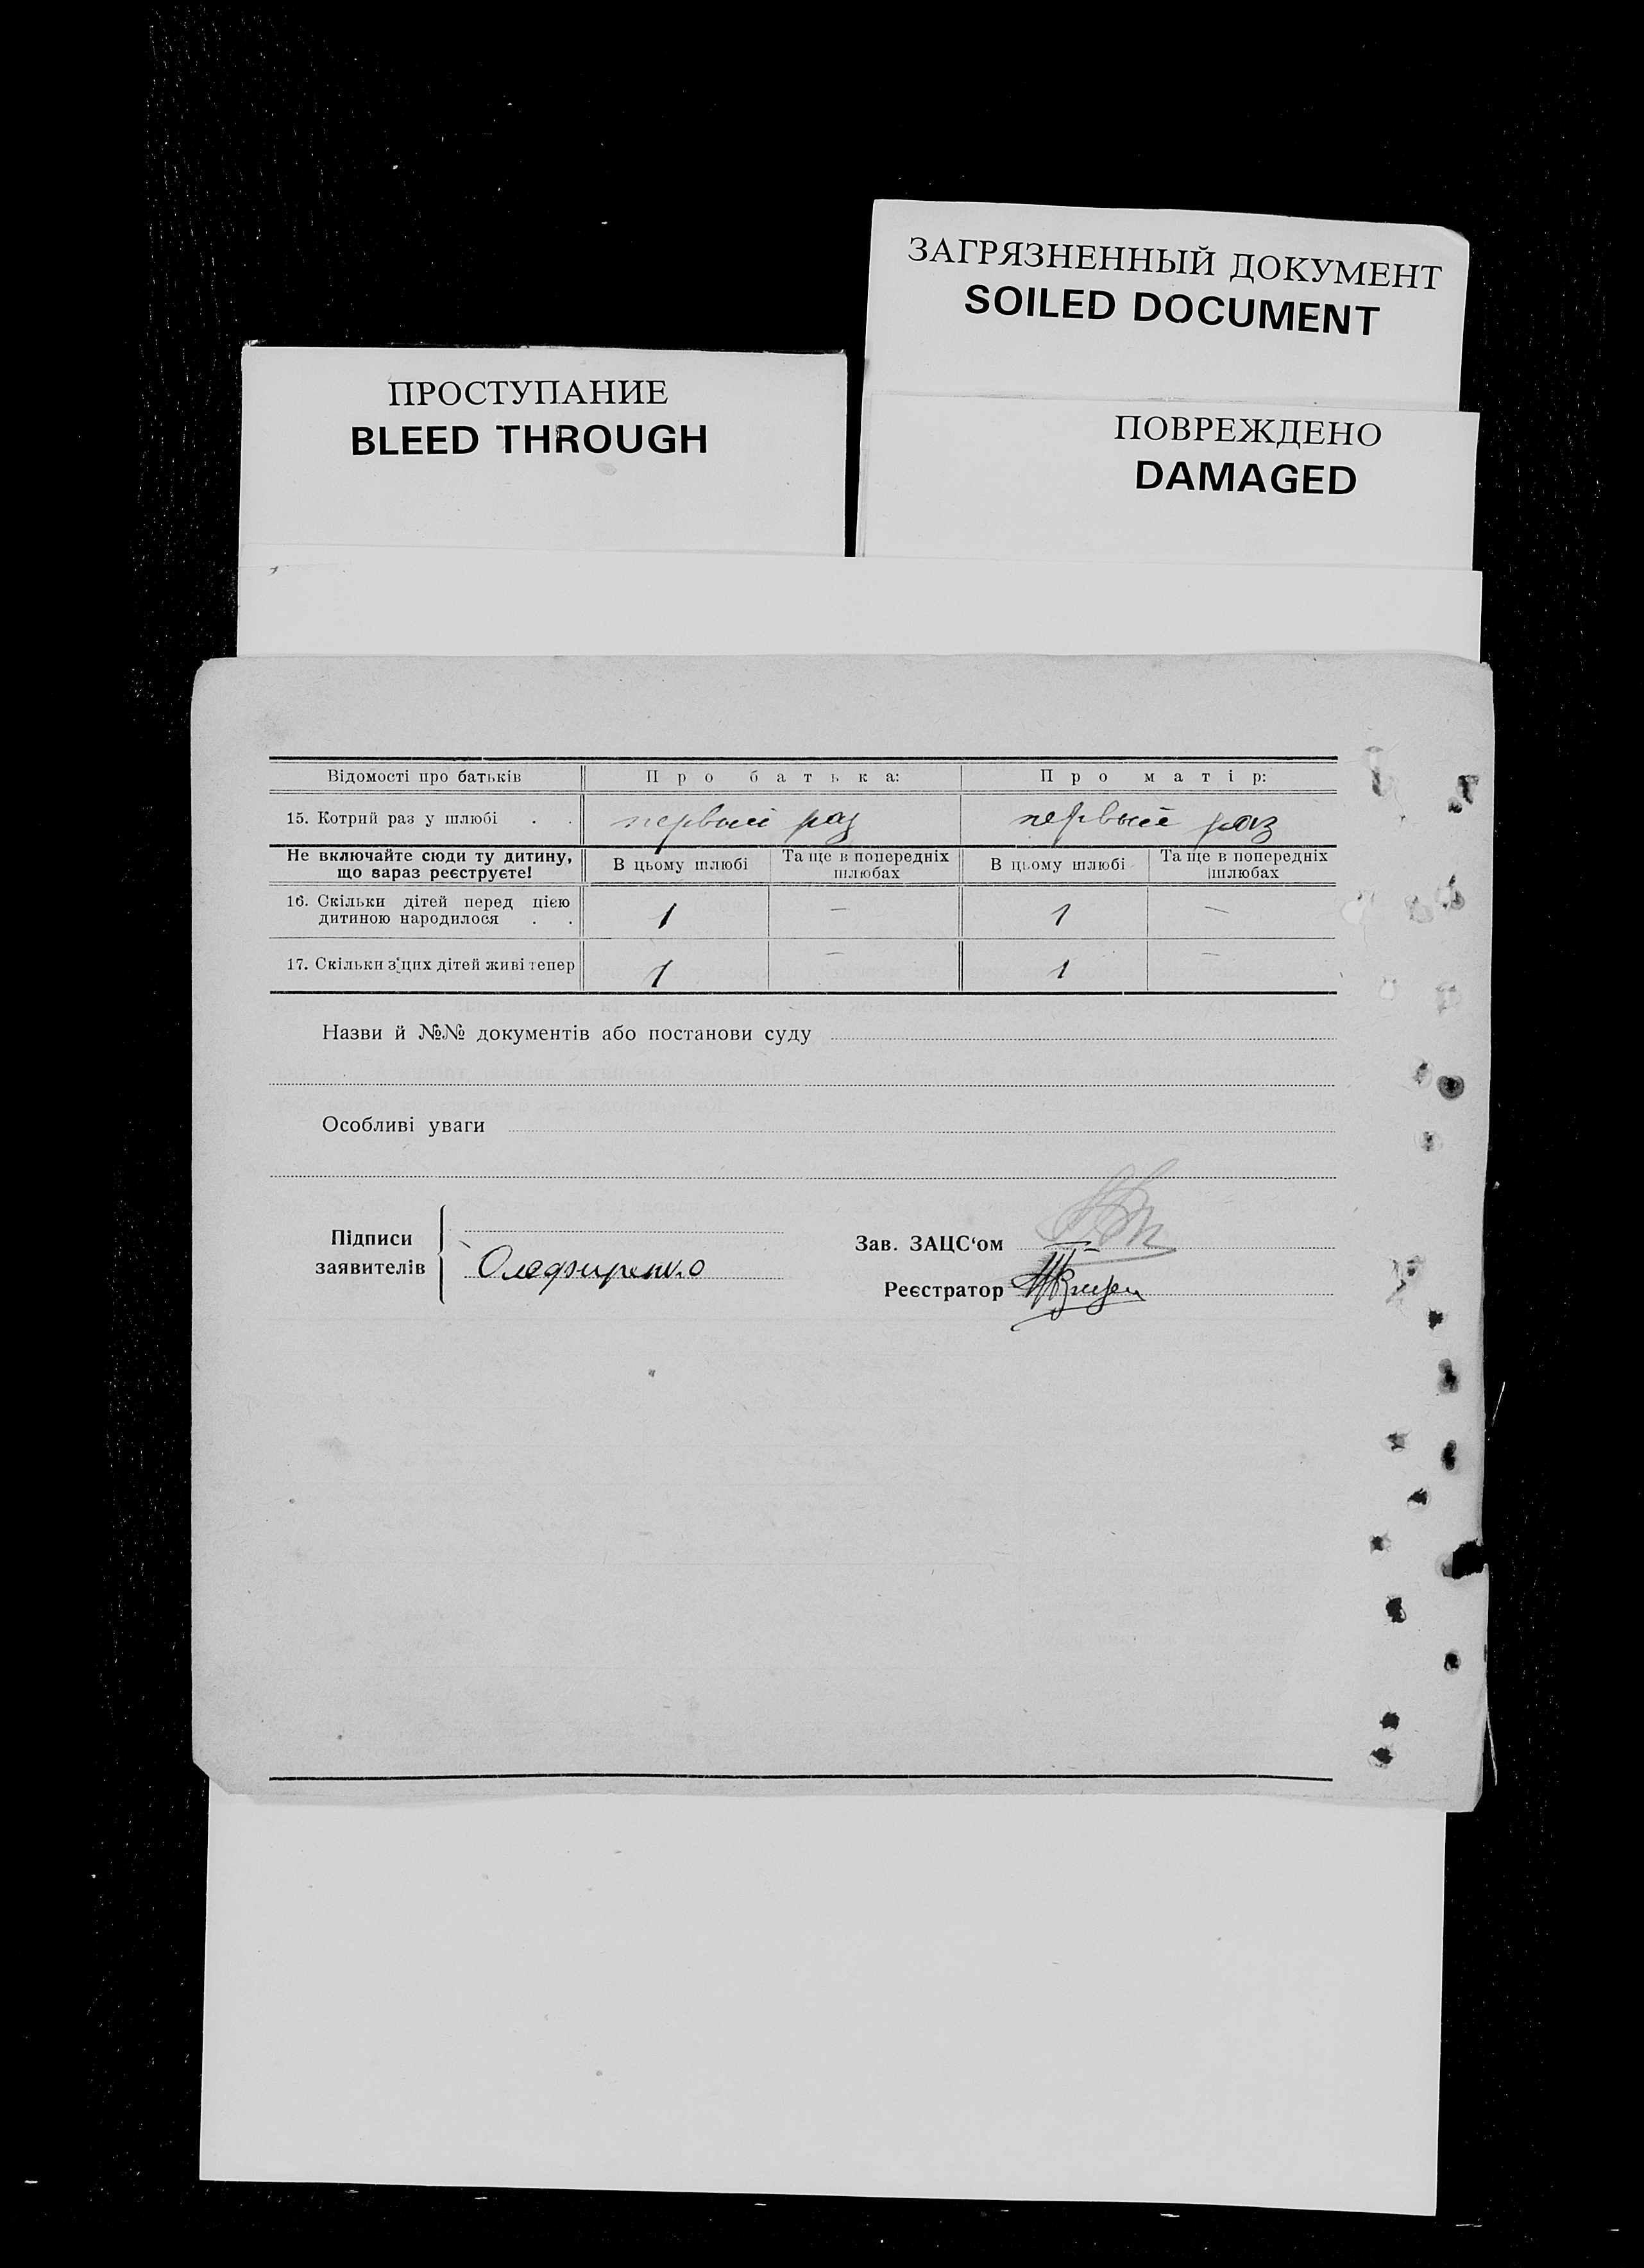 ЗАГРЯЗНЕННЫЙ ДОКУМЕНТ
SOILED DOCUMENT
ПРОСТУПАНИЕ
BLEED THROUGH
ПОВРЕЖДЕНО
DAMAGED
Відомості про батьків Про батька: Про матір:
15. Котрий раз у шлюбі . . первый раз первый раз
Не включайте сюди ту дитину, що вараз реєструєте! В цьому шлюбі Та ще в попередніх шлюбах В цьому шлюбі Та ще в попередніх шлюбах
16. Скільки дітей перед цією дитиною народилося . . 1 — 1 —
17. Скільки з цих дітей живі тепер 1 — 1 —
Назви й №№ документів або постанови суду
Особливі уваги
Підписи заявителів
Зав. ЗАЦС‘ом
Реєстратор